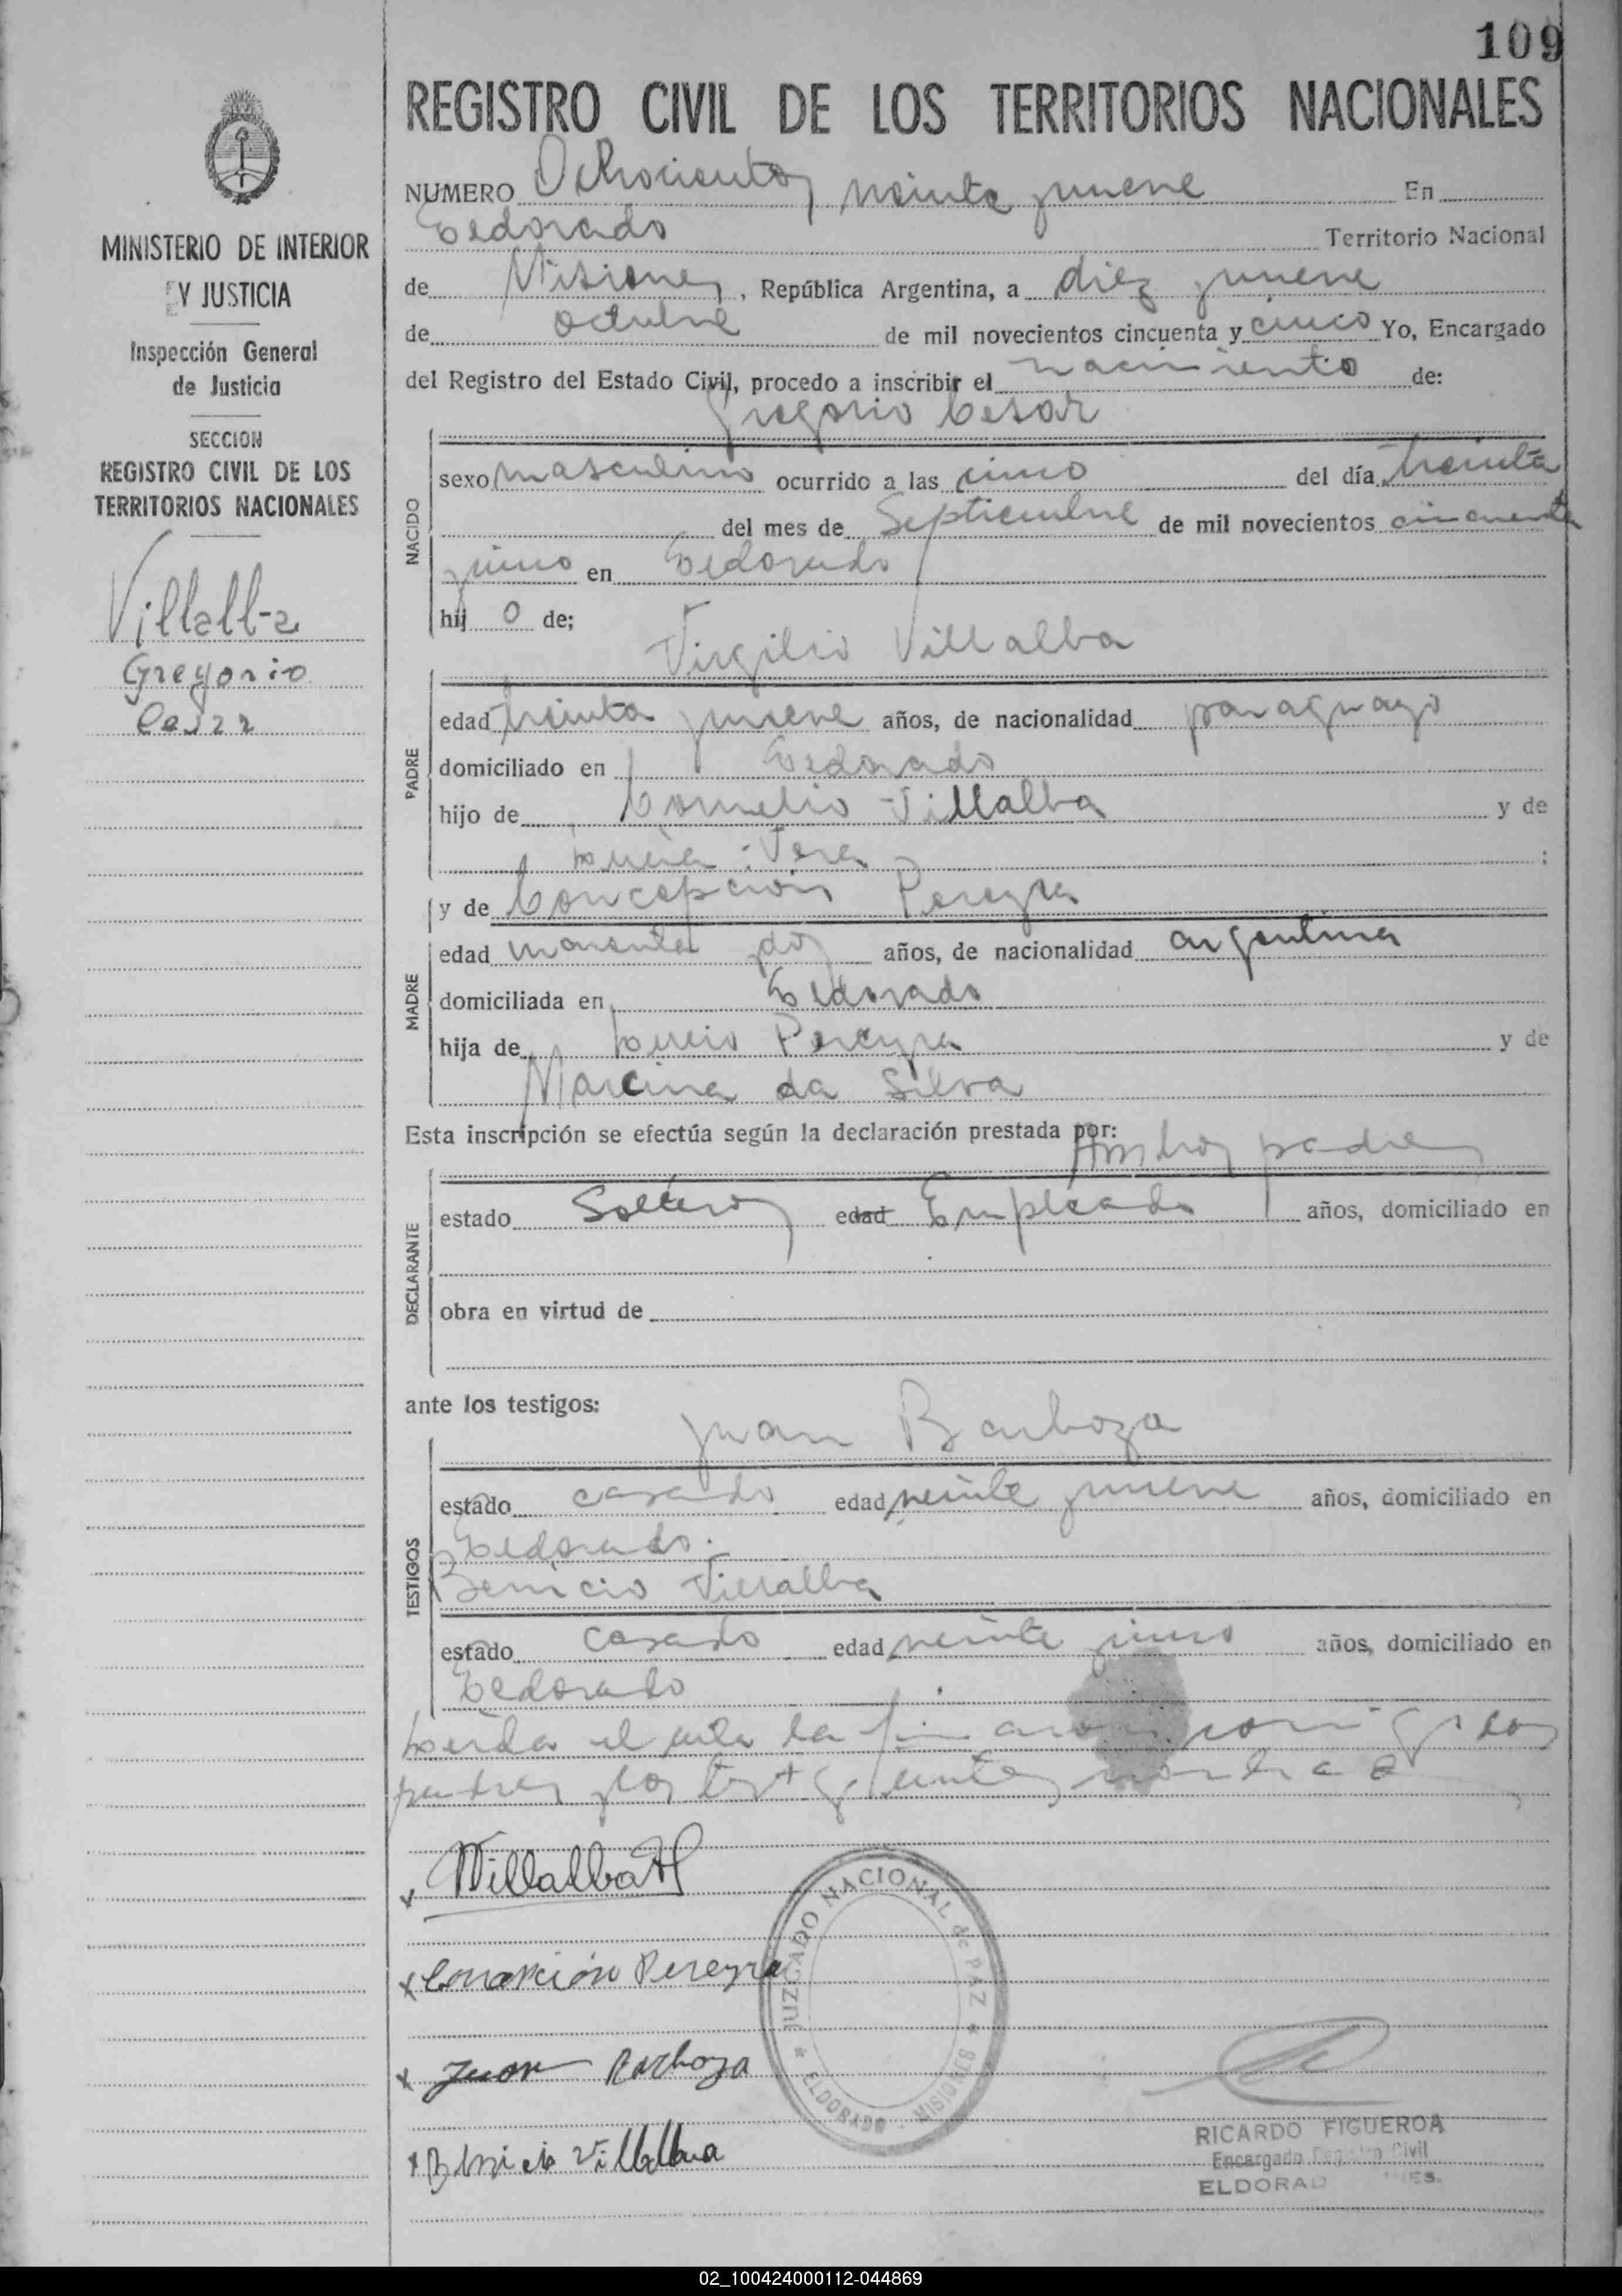 109
REGISTRO CIVIL DE LOS TERRITORIOS NACIONALES
MINISTERIO DE INTERIOR
Y JUSTICIA
Inspección General
de Justicia
SECCION
REGISTRO CIVIL DE LOS
TERRITORIOS NACIONALES
Villalba
Gregorio
Cesar
NUMERO Ochocientos veinte y nueve En
Eldorado Territorio Nacional
de Misiones, República Argentina, a diez y nueve
de octubre de mil novecientos cincuenta y cinco Yo, Encargado
del Registro del Estado Civil, procedo a inscribir el nacimiento de:
Gregorio Cesar
NACIDO
sexo masculino ocurrido a las cinco del día treinta
del mes de Septiembre de mil novecientos cincuenta
y cinco en Eldorado
hij o de;
Virgilio Villalba
PADRE
edad treinta y nueve años, de nacionalidad paraguayo
domiciliado en Eldorado
hijo de Cornelio Villalba y de
Lucia Vera ;
y de Concepción Pereyra
MADRE
edad cuarenta y dos años, de nacionalidad argentina
domiciliada en Eldorado
hija de Lucio Pereyra y de
Marcina da Silva
Esta inscripción se efectúa según la declaración prestada por:
Ambos padres
DECLARANTE
estado Solteros edad Empleado años, domiciliado en
obra en virtud de
ante los testigos:
Juan Barboza
TESTIGOS
estado casado edad veinte y nueve años, domiciliado en
Eldorado.
Benicio Villalba
estado casado edad veinte y cinco años, domiciliado en
Eldorado
Leida el acta la firmaron conmigo los
padres y los testigos
Villalba
Concepción Pereyra
Juan Barboza
Benicio Villalba
JUZGADO NACIONAL de PAZ
ELDORADO - MISIONES
RICARDO FIGUEROA
Encargado Registro Civil
ELDORADO
02_100424000112-044869